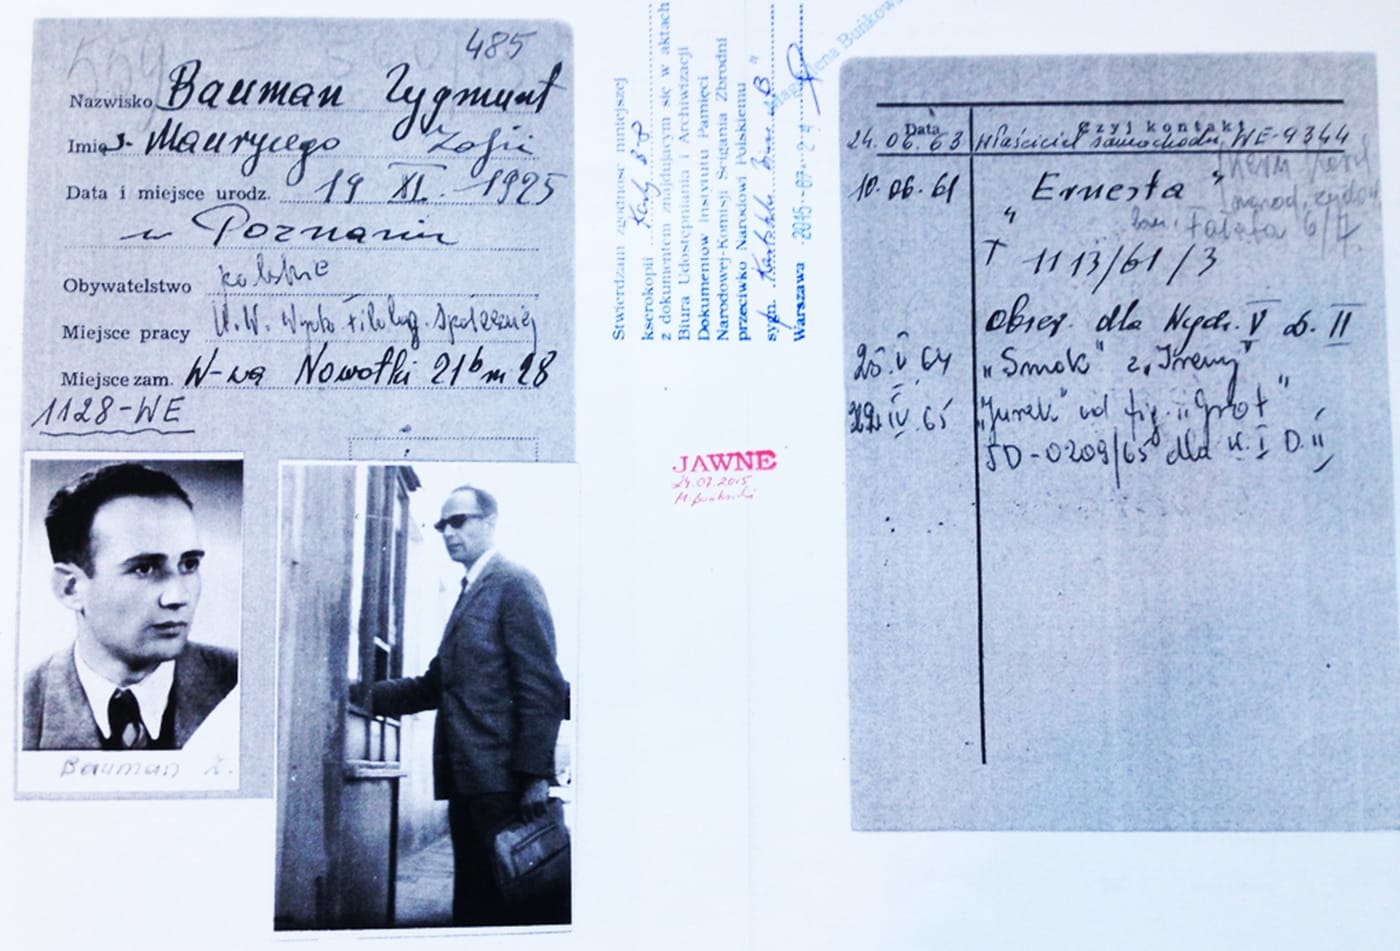 485
Nazwisko Bauman Zygmunt
Imię s. Maurycego Zofii
Data i miejsce urodz. 19 XI. 1925
w Poznaniu
Obywatelstwo polskie
Miejsce pracy U.W. Wydz. Filozof.
Miejsce zam. W-wa Nowotki 21b m 28
1128-WE
Bauman Z.
Stwierdzam zgodność niniejszej
kserokopii
z dokumentem znajdującym się w aktach
Biura Udostępniania i Archiwizacji
Dokumentów Instytutu Pamięci
Narodowej-Komisji Ścigania Zbrodni
przeciwko Narodowi Polskiemu
sygn.
Warszawa 2015-07-24
JAWNE
24.07.2015
Data Czyj kontakt
24.06.63 Właściciel samochodu WE-9344
10.06.61 "Ernesta"
T 1113/61/3
obser. dla Wydz. V ob. II
25.V.64 "Smok" z "Ireny"
22.IV.65 "Jurek" od fig. "Grot"
SD-0209/65 dla W. I O. II